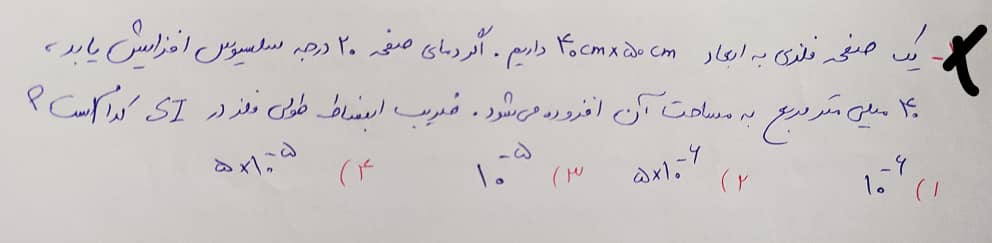 - یک صفحه فلزی به ابعاد ۴۰cm×۵۰cm داریم. اگر دمای صفحه ۲۰ درجه سلسیوس افزایش یابد،
۴۰ میلی متر مربع به مساحت آن افزوده می‌شود. ضریب انبساط طولی فلز در SI کدام است؟
۱) ۱۰^-۶ ۲) ۵×۱۰^-۶ ۳) ۱۰^-۵ ۴) ۵×۱۰^-۵